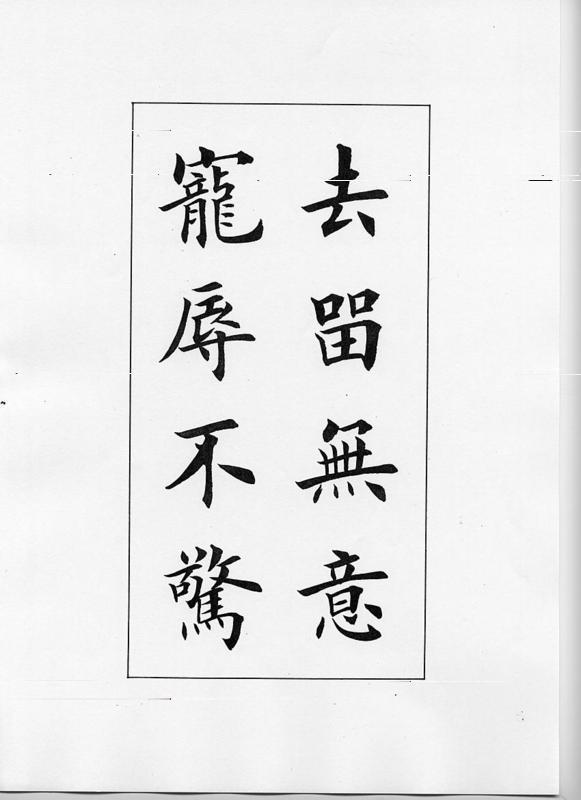 去留無意
寵辱不驚